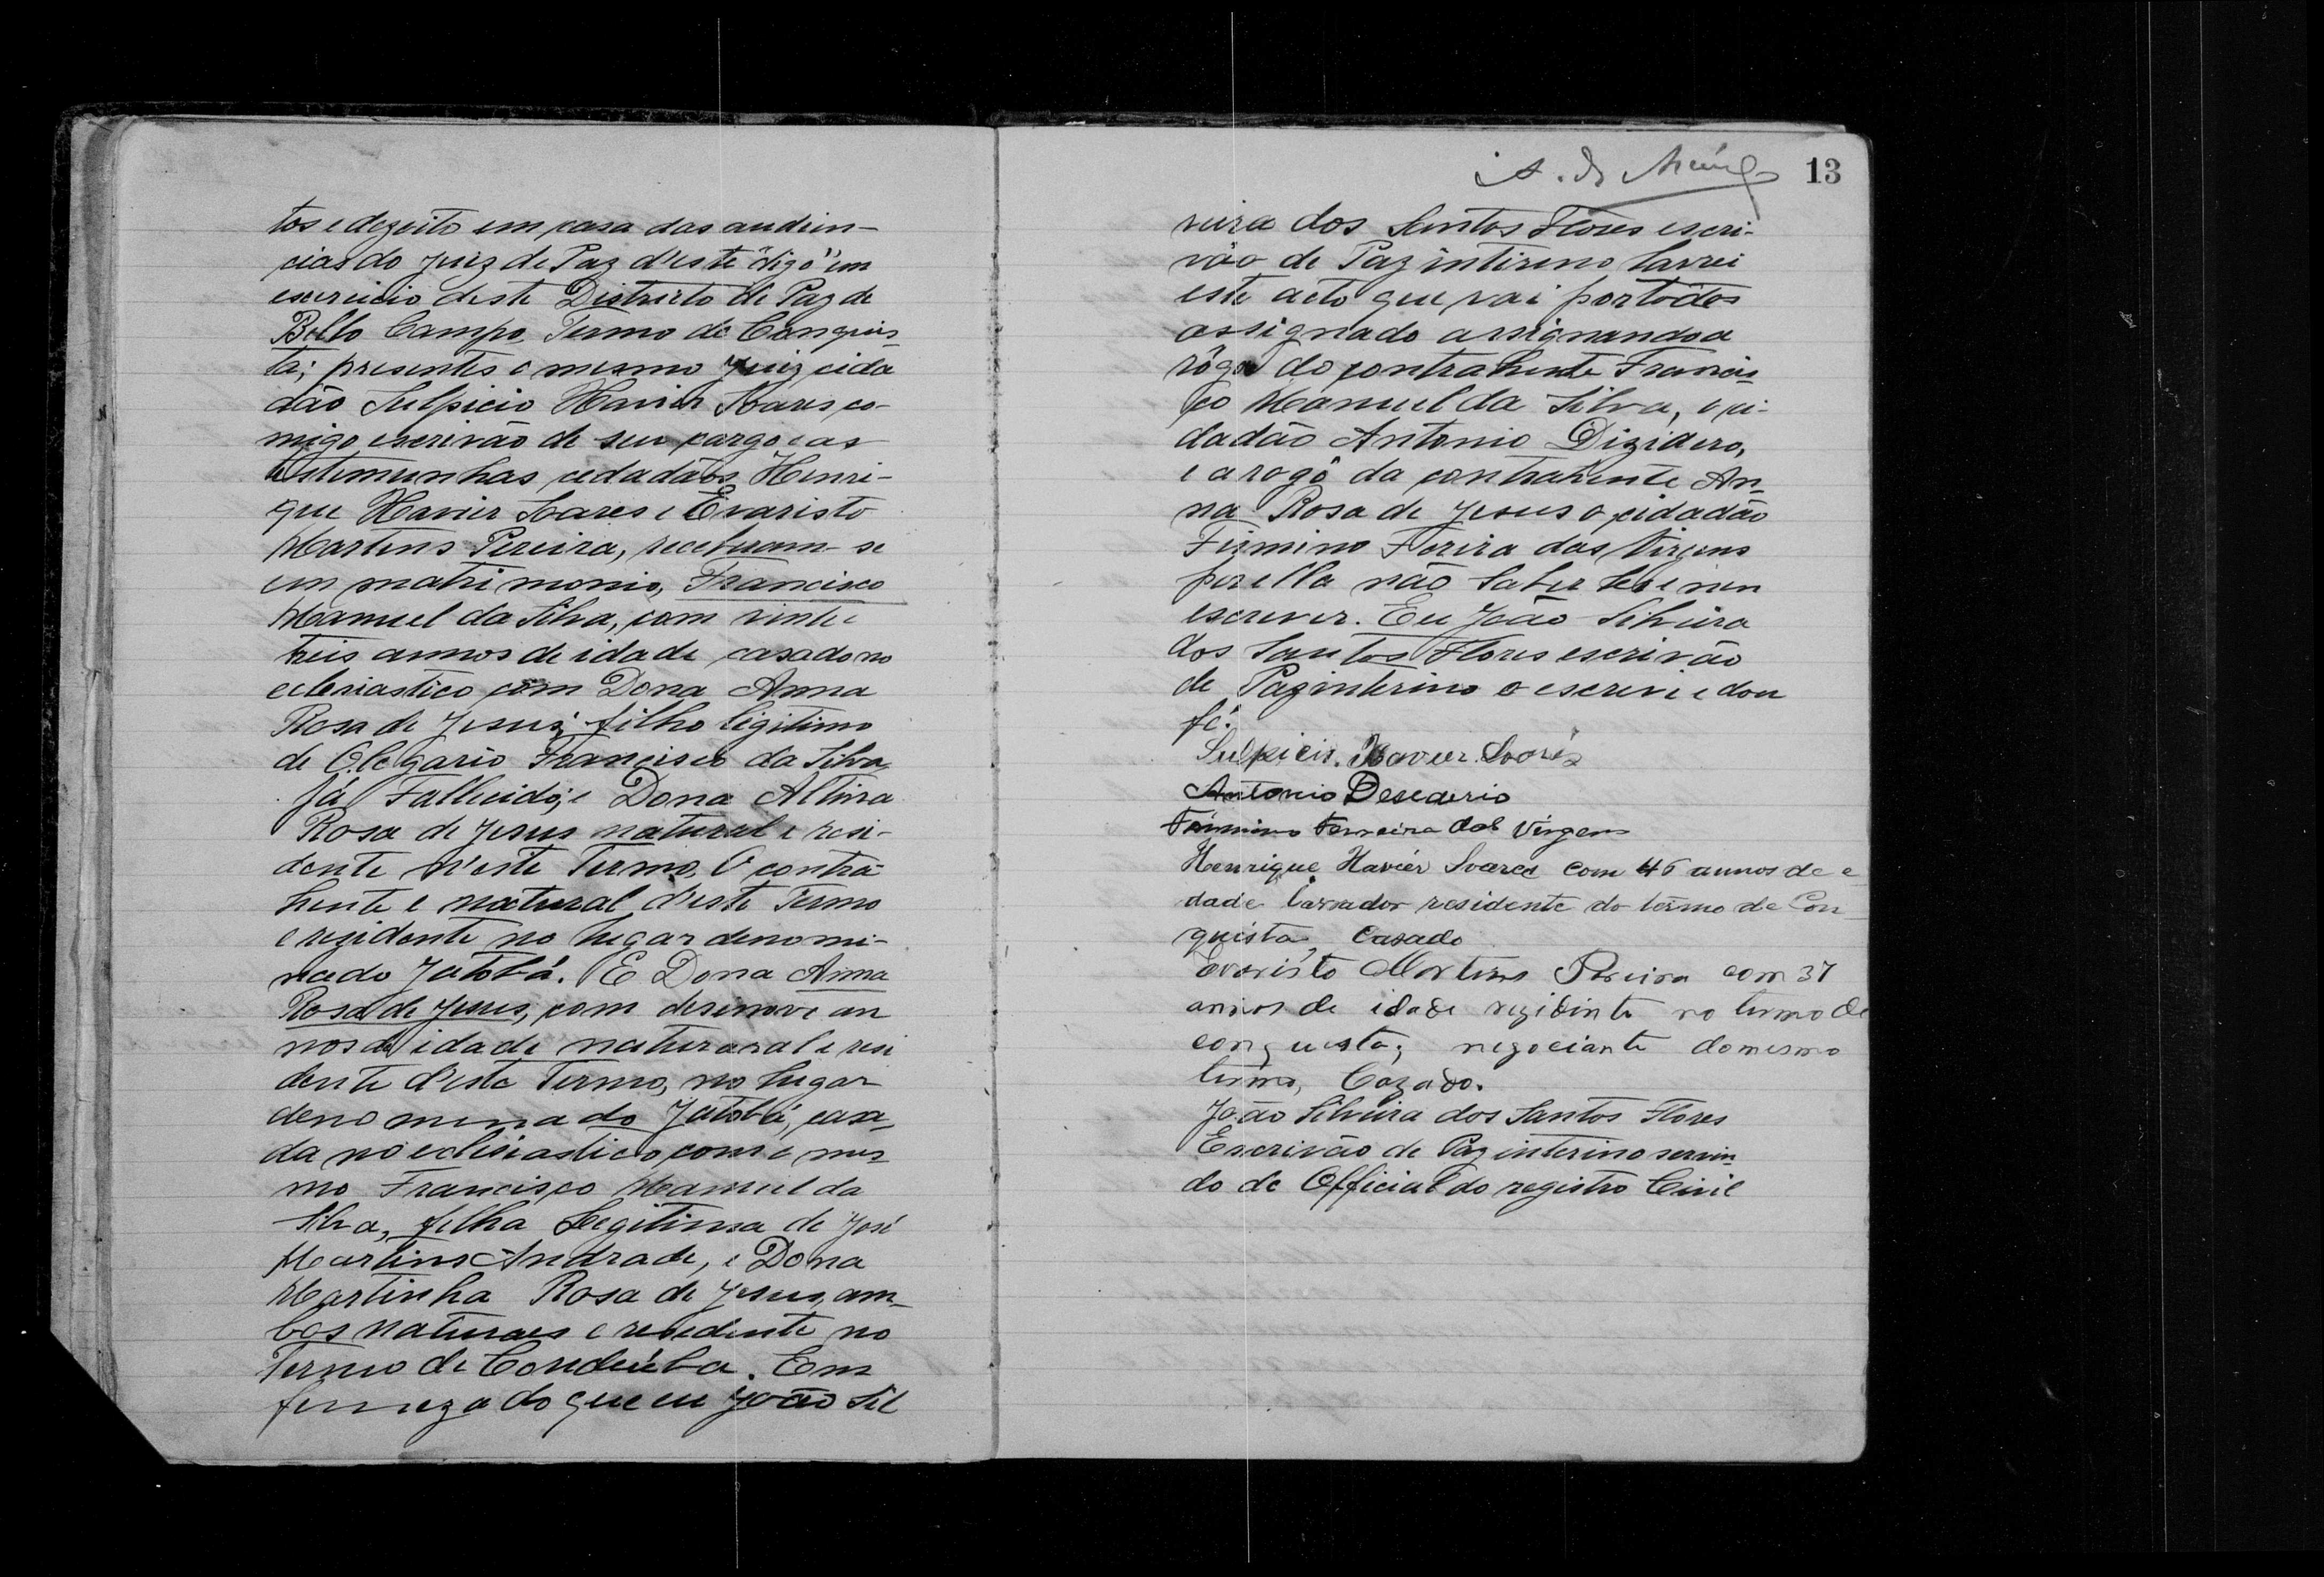 tos e dezoito em casa das audien-
cias do juiz de Paz d'este "digo" em
exercicio deste Districto de Paz de
Bello Campo Termo de Conquis-
ta; presentes o mesmo juiz cida
dão Sulpicio Xavier Soares, co-
migo escrivão de seu cargo e as
testimunhas cedadãos Henri-
que Xavier Soares e Evaristo
Martins Pereira, receberam-se
em matrimonio, Francisco
Manuel da Silva, com vinte e
treis annos de idade casado no
eclesiastico com Dona Anna
Rosa de Jesus, filho legitimo
de Olegario Francisco da Silva
já Fallecido, e Dona Altina
Rosa de Jesus natural e resi-
dente n'este Termo, O contra-
hente e natural d'este Termo
e rezidente no lugar denomi-
nado Jatobá. E Dona Anna
Rosa de Jesus, com desenove an
nos de idade naturaral e resi
dente d'este Termo, no lugar
denominado Jatobá, casa-
da no eclisiastico com o mes-
mo Francisco Manuel da
Silva, filha Legitima de José
Martins Andrade, e Dona
Martinha Rosa de Jesus, am-
bos naturaes e resedente no
Termo de Condeúba. Em
firmeza do que eu João Sil
13
veira dos Santos Flores escri-
vão de Paz intireno lavrei
este acto que vai por todos
assignado assignando a
rôgo do contrahente Francis-
co Manuel da Silva, o ci-
dadão Antonio Dizidero,
e a rogô da contrahente An-
na Rosa de Jesus o cidadão
Firmino Ferira das Virgens
por ella não saber ler e nen
escrever. Eu João Silveira
dos Santos Flores escrivão
de Paz interino o escrevi e dou
fé.
Sulpicio Xavier Soares
Antonio Desederio
Firmino Ferreira das Virgens
Henrique Xavier Soares com 46 annos de e
dade lavrador residente do termo de Con
quista, casado
Evaristo Martins Pereira com 37
annos de idade rezidinte no termo de
conquista; negociante do mesmo
termo, Cazado.
João Silveira dos Santos Flores
Escrivão de Paz interino servin-
do de Official do registro Civil